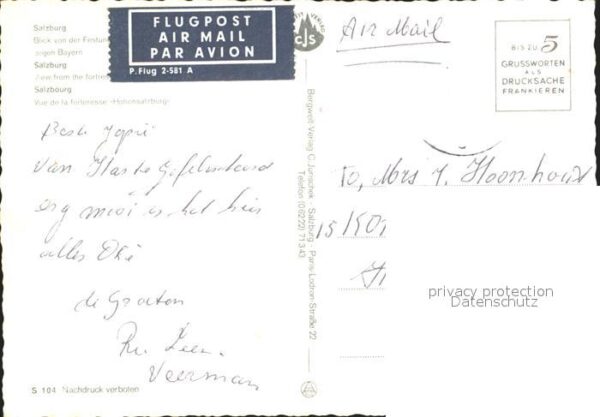 Salzburg
Blick von der Festun
gegen Bayern
Salzburg
View from the fortre
Salzbourg
Vue de la forteresse «Hohensalzburg»
FLUGPOST
AIR MAIL
PAR AVION
P. Flug 2-581 A
VERLAG
CJS
Air Mail
BIS ZU 5
GRUSSWORTEN
ALS
DRUCKSACHE
FRANKIEREN
Beste Jopie
van Harte Gefeliciteerd
erg mooi is het hier
alles Oké
de Groeten
Leen.
Veerman
S 104 Nachdruck verboten
Bergwelt-Verlag C. Jurischek - Salzburg - Paris-Lodron-Straße 22
Telefon (06222) 71343
To, Mrs J. Hoonhout
15
privacy protection
Datenschutz